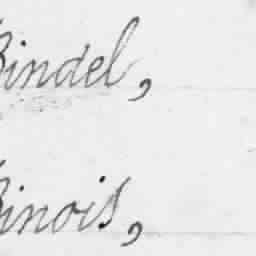 Bindel,
Binois,